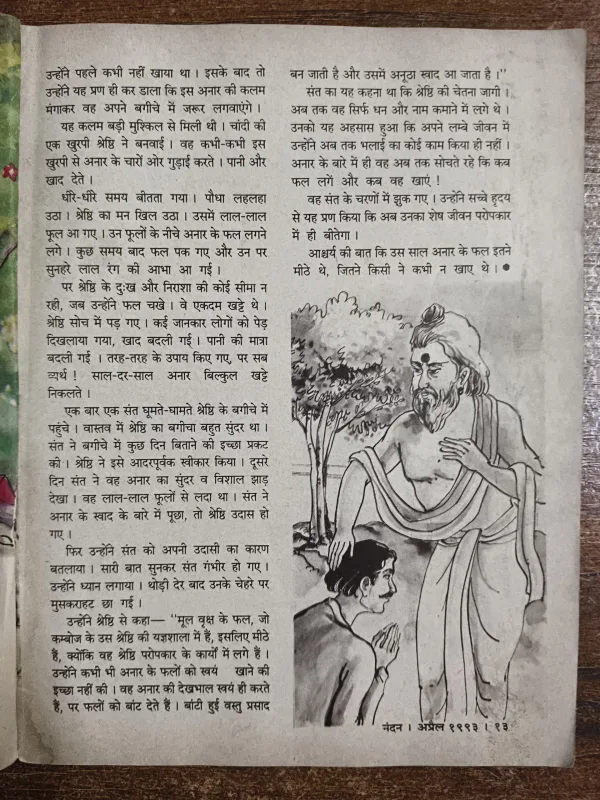 उन्होंने पहले कभी नहीं खाया था । इसके बाद तो
उन्होंने यह प्रण ही कर डाला कि इस अनार की कलम
मंगाकर वह अपने बगीचे में जरूर लगवाएंगे ।
यह कलम बड़ी मुश्किल से मिली थी । चांदी की
एक खुरपी श्रेष्ठि ने बनवाई । वह कभी-कभी इस
खुरपी से अनार के चारों ओर गुड़ाई करते । पानी और
खाद देते ।
धीरे-धीरे समय बीतता गया । पौधा लहलहा
उठा । श्रेष्ठि का मन खिल उठा । उसमें लाल-लाल
फूल आ गए । उन फूलों के नीचे अनार के फल लगने
लगे । कुछ समय बाद फल पक गए और उन पर
सुनहरे लाल रंग की आभा आ गई ।
पर श्रेष्ठि के दुःख और निराशा की कोई सीमा न
रही, जब उन्होंने फल चखे । वे एकदम खट्टे थे ।
श्रेष्ठि सोच में पड़ गए । कई जानकार लोगों को पेड़
दिखलाया गया, खाद बदली गई । पानी की मात्रा
बदली गई । तरह-तरह के उपाय किए गए, पर सब
व्यर्थ ! साल-दर-साल अनार बिल्कुल खट्टे
निकलते ।
एक बार एक संत घूमते-घामते श्रेष्ठि के बगीचे में
पहुंचे । वास्तव में श्रेष्ठि का बगीचा बहुत सुंदर था ।
संत ने बगीचे में कुछ दिन बिताने की इच्छा प्रकट
की । श्रेष्ठि ने इसे आदरपूर्वक स्वीकार किया । दूसरे
दिन संत ने वह अनार का सुंदर व विशाल झाड़
देखा । वह लाल-लाल फूलों से लदा था । संत ने
अनार के स्वाद के बारे में पूछा, तो श्रेष्ठि उदास हो
गए ।
फिर उन्होंने संत को अपनी उदासी का कारण
बतलाया । सारी बात सुनकर संत गंभीर हो गए ।
उन्होंने ध्यान लगाया । थोड़ी देर बाद उनके चेहरे पर
मुसकराहट छा गई ।
उन्होंने श्रेष्ठि से कहा— "मूल वृक्ष के फल, जो
कम्बोज के उस श्रेष्ठि की यज्ञशाला में हैं, इसलिए मीठे
हैं, क्योंकि वह श्रेष्ठि परोपकार के कार्यों में लगे हैं ।
उन्होंने कभी भी अनार के फलों को स्वयं खाने की
इच्छा नहीं की । वह अनार की देखभाल स्वयं ही करते
हैं, पर फलों को बांट देते हैं । बांटी हुई वस्तु प्रसाद
बन जाती है और उसमें अनूठा स्वाद आ जाता है ।"
संत का यह कहना था कि श्रेष्ठि की चेतना जागी ।
अब तक वह सिर्फ धन और नाम कमाने में लगे थे ।
उनको यह अहसास हुआ कि अपने लम्बे जीवन में
उन्होंने अब तक भलाई का कोई काम किया ही नहीं ।
अनार के बारे में ही वह अब तक सोचते रहे कि कब
फल लगें और कब वह खाएं !
वह संत के चरणों में झुक गए । उन्होंने सच्चे हृदय
से यह प्रण किया कि अब उनका शेष जीवन परोपकार
में ही बीतेगा ।
आश्चर्य की बात कि उस साल अनार के फल इतने
मीठे थे, जितने किसी ने कभी न खाए थे । ●
नंदन । अप्रैल १९९३ । १३